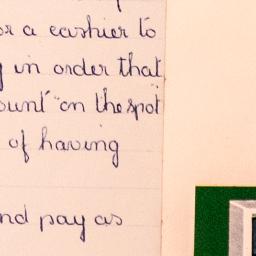 or a cashier to
in order that
ount" on the spot
of having
nd pay as